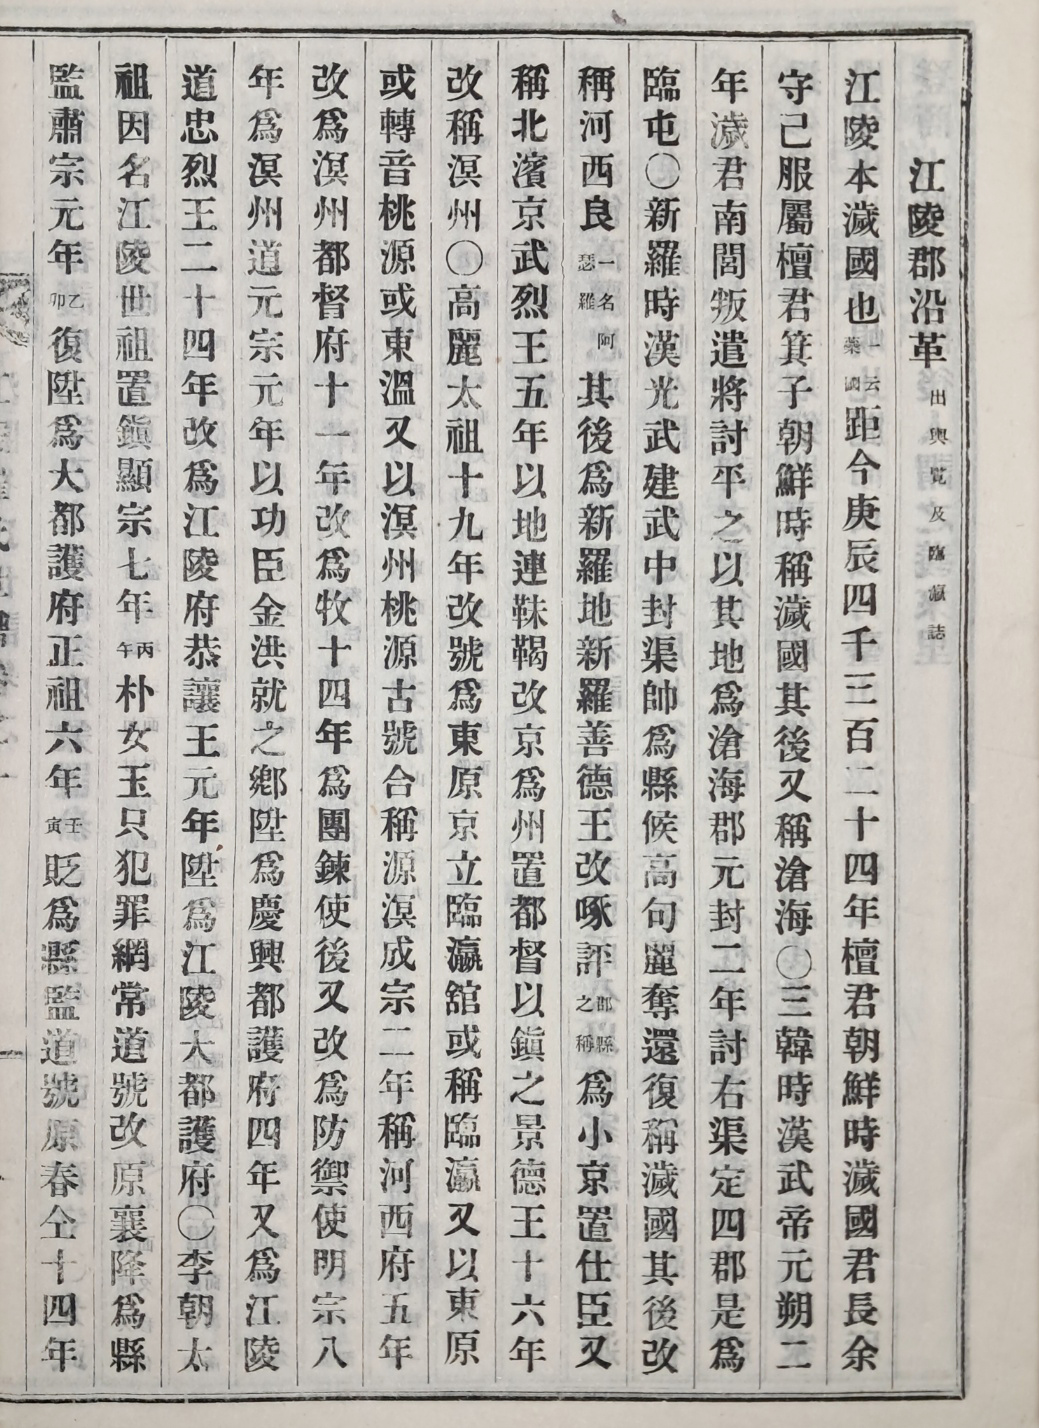 江陵郡沿革 出輿覽及臨瀛誌
江陵本濊國也 一云蘂國 距今庚辰四千三百二十四年檀君朝鮮時濊國君長余
守己服屬檀君箕子朝鮮時稱濊國其後又稱滄海〇三韓時漢武帝元朔二
年濊君南閭叛遣將討平之以其地爲滄海郡元封二年討右渠定四郡是爲
臨屯〇新羅時漢光武建武中封渠帥爲縣候高句麗奪還復稱濊國其後改
稱河西良 一名阿瑟羅 其後爲新羅地新羅善德王改啄評 郡縣之稱 爲小京置仕臣又
稱北濱京武烈王五年以地連靺鞨改京爲州置都督以鎭之景德王十六年
改稱溟州〇高麗太祖十九年改號爲東原京立臨瀛舘或稱臨瀛又以東原
或轉音桃源或東溫又以溟州桃源古號合稱源溟成宗二年稱河西府五年
改爲溟州都督府十一年改爲牧十四年爲團鍊使後又改爲防禦使明宗八
年爲溟州道元宗元年以功臣金洪就之鄕陞爲慶興都護府四年又爲江陵
道忠烈王二十四年改爲江陵府恭讓王元年陞爲江陵大都護府〇李朝太
祖因名江陵世祖置鎭顯宗七年 丙午 朴女玉只犯罪綱常道號改原襄降爲縣
監肅宗元年 乙卯 復陞爲大都護府正祖六年 壬寅 貶爲縣監道號原春仝十四年